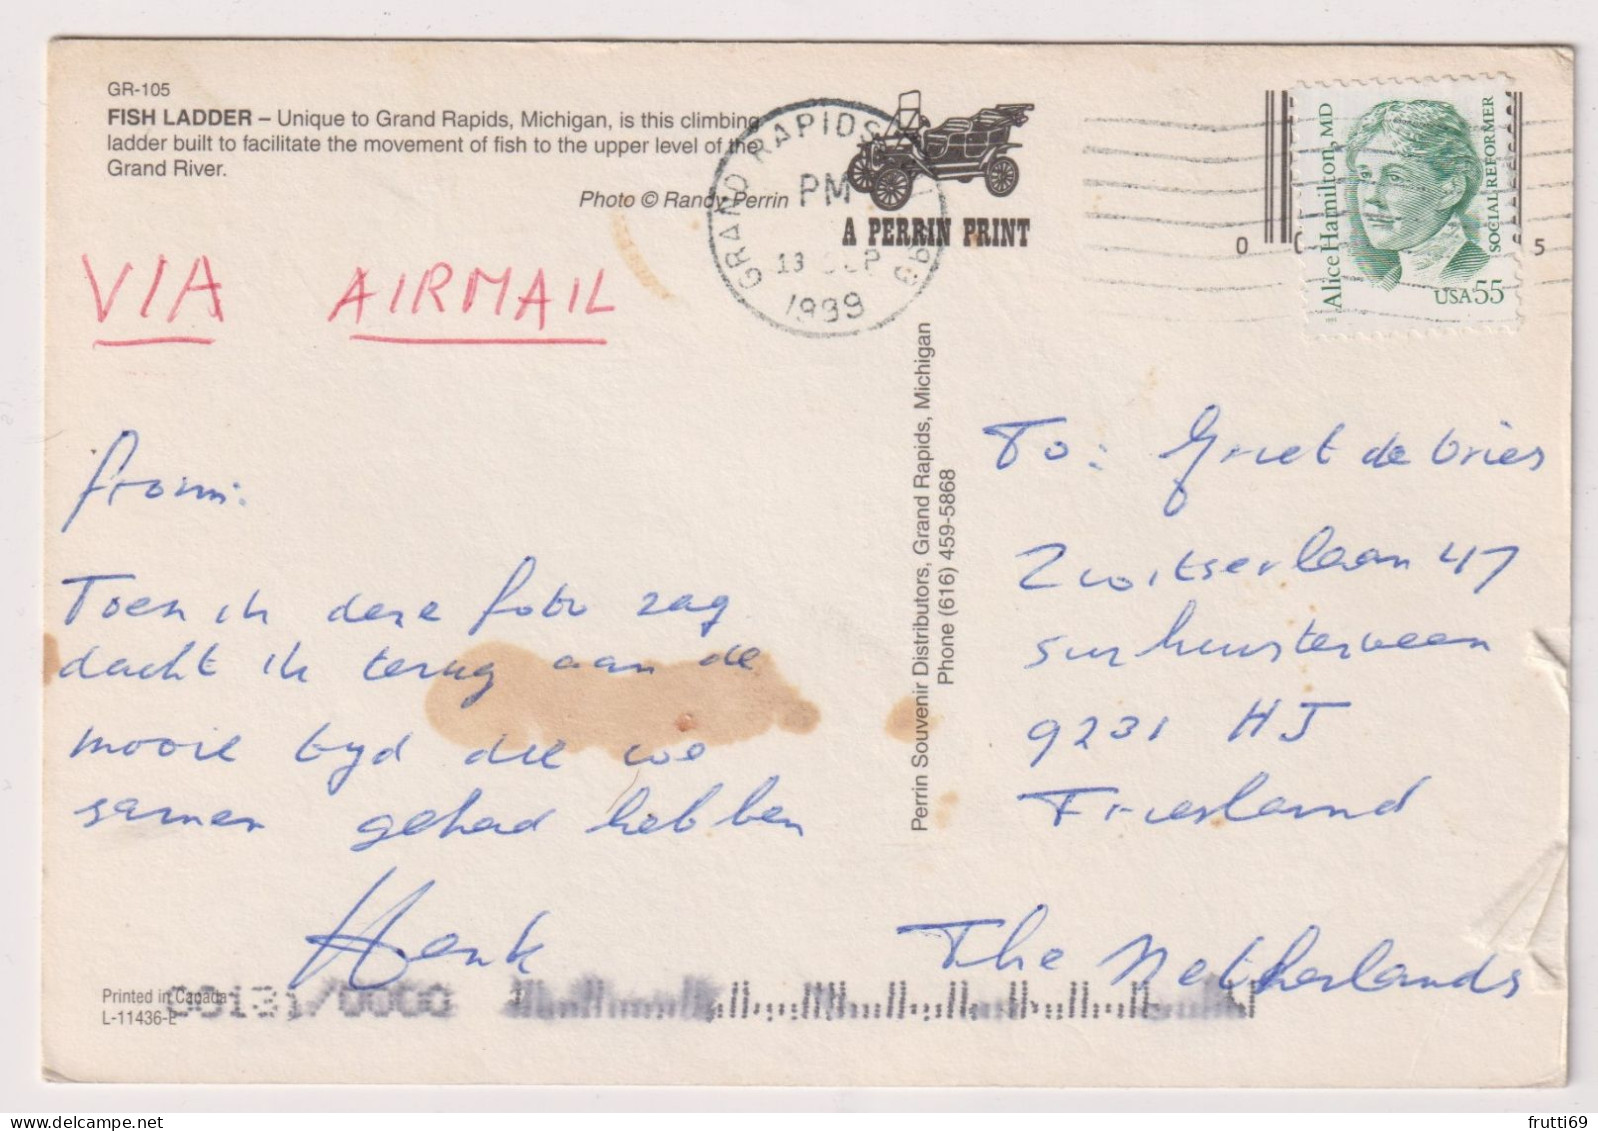 GR-105
FISH LADDER – Unique to Grand Rapids, Michigan, is this climbing
ladder built to facilitate the movement of fish to the upper level of the
Grand River.
Photo © Randy Perrin
GRAND RAPIDS
PM
13
1999
A PERRIN PRINT
0
5
Alice Hamilton, MD
SOCIAL REFORMER
USA 55
VIA AIRMAIL
from:
Toen ik deze foto zag
dacht ik terug aan de
mooie tyd die we
samen gehad hebben
Henk
Perrin Souvenir Distributors, Grand Rapids, Michigan
Phone (616) 459-5868
To: Griet de Vries
Zwitserlaan 47
Surhuisterveen
9231 HJ
Friesland
The Netherlands
Printed in Canada
L-11436-E
frutti69